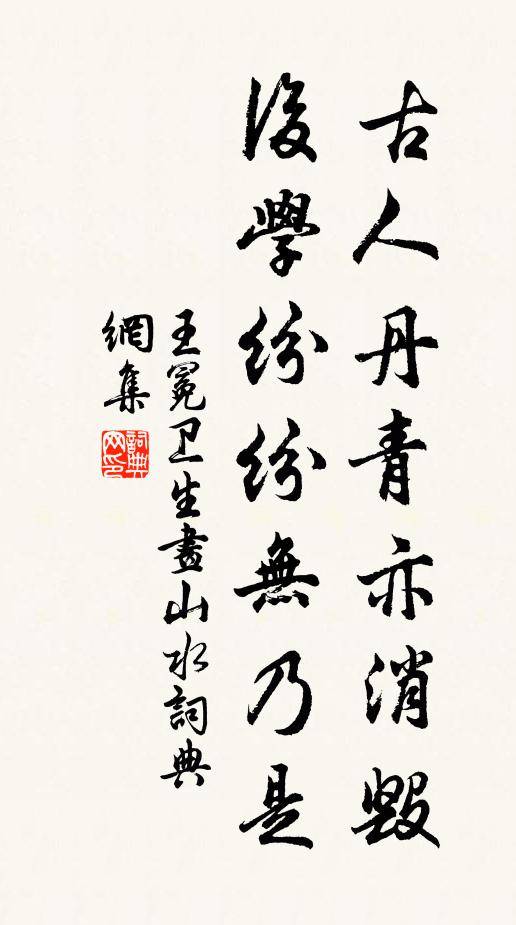 古人丹青亦消毀
後學紛紛無乃是
王冕卫生畫山水詞典
網集
詞典
网印